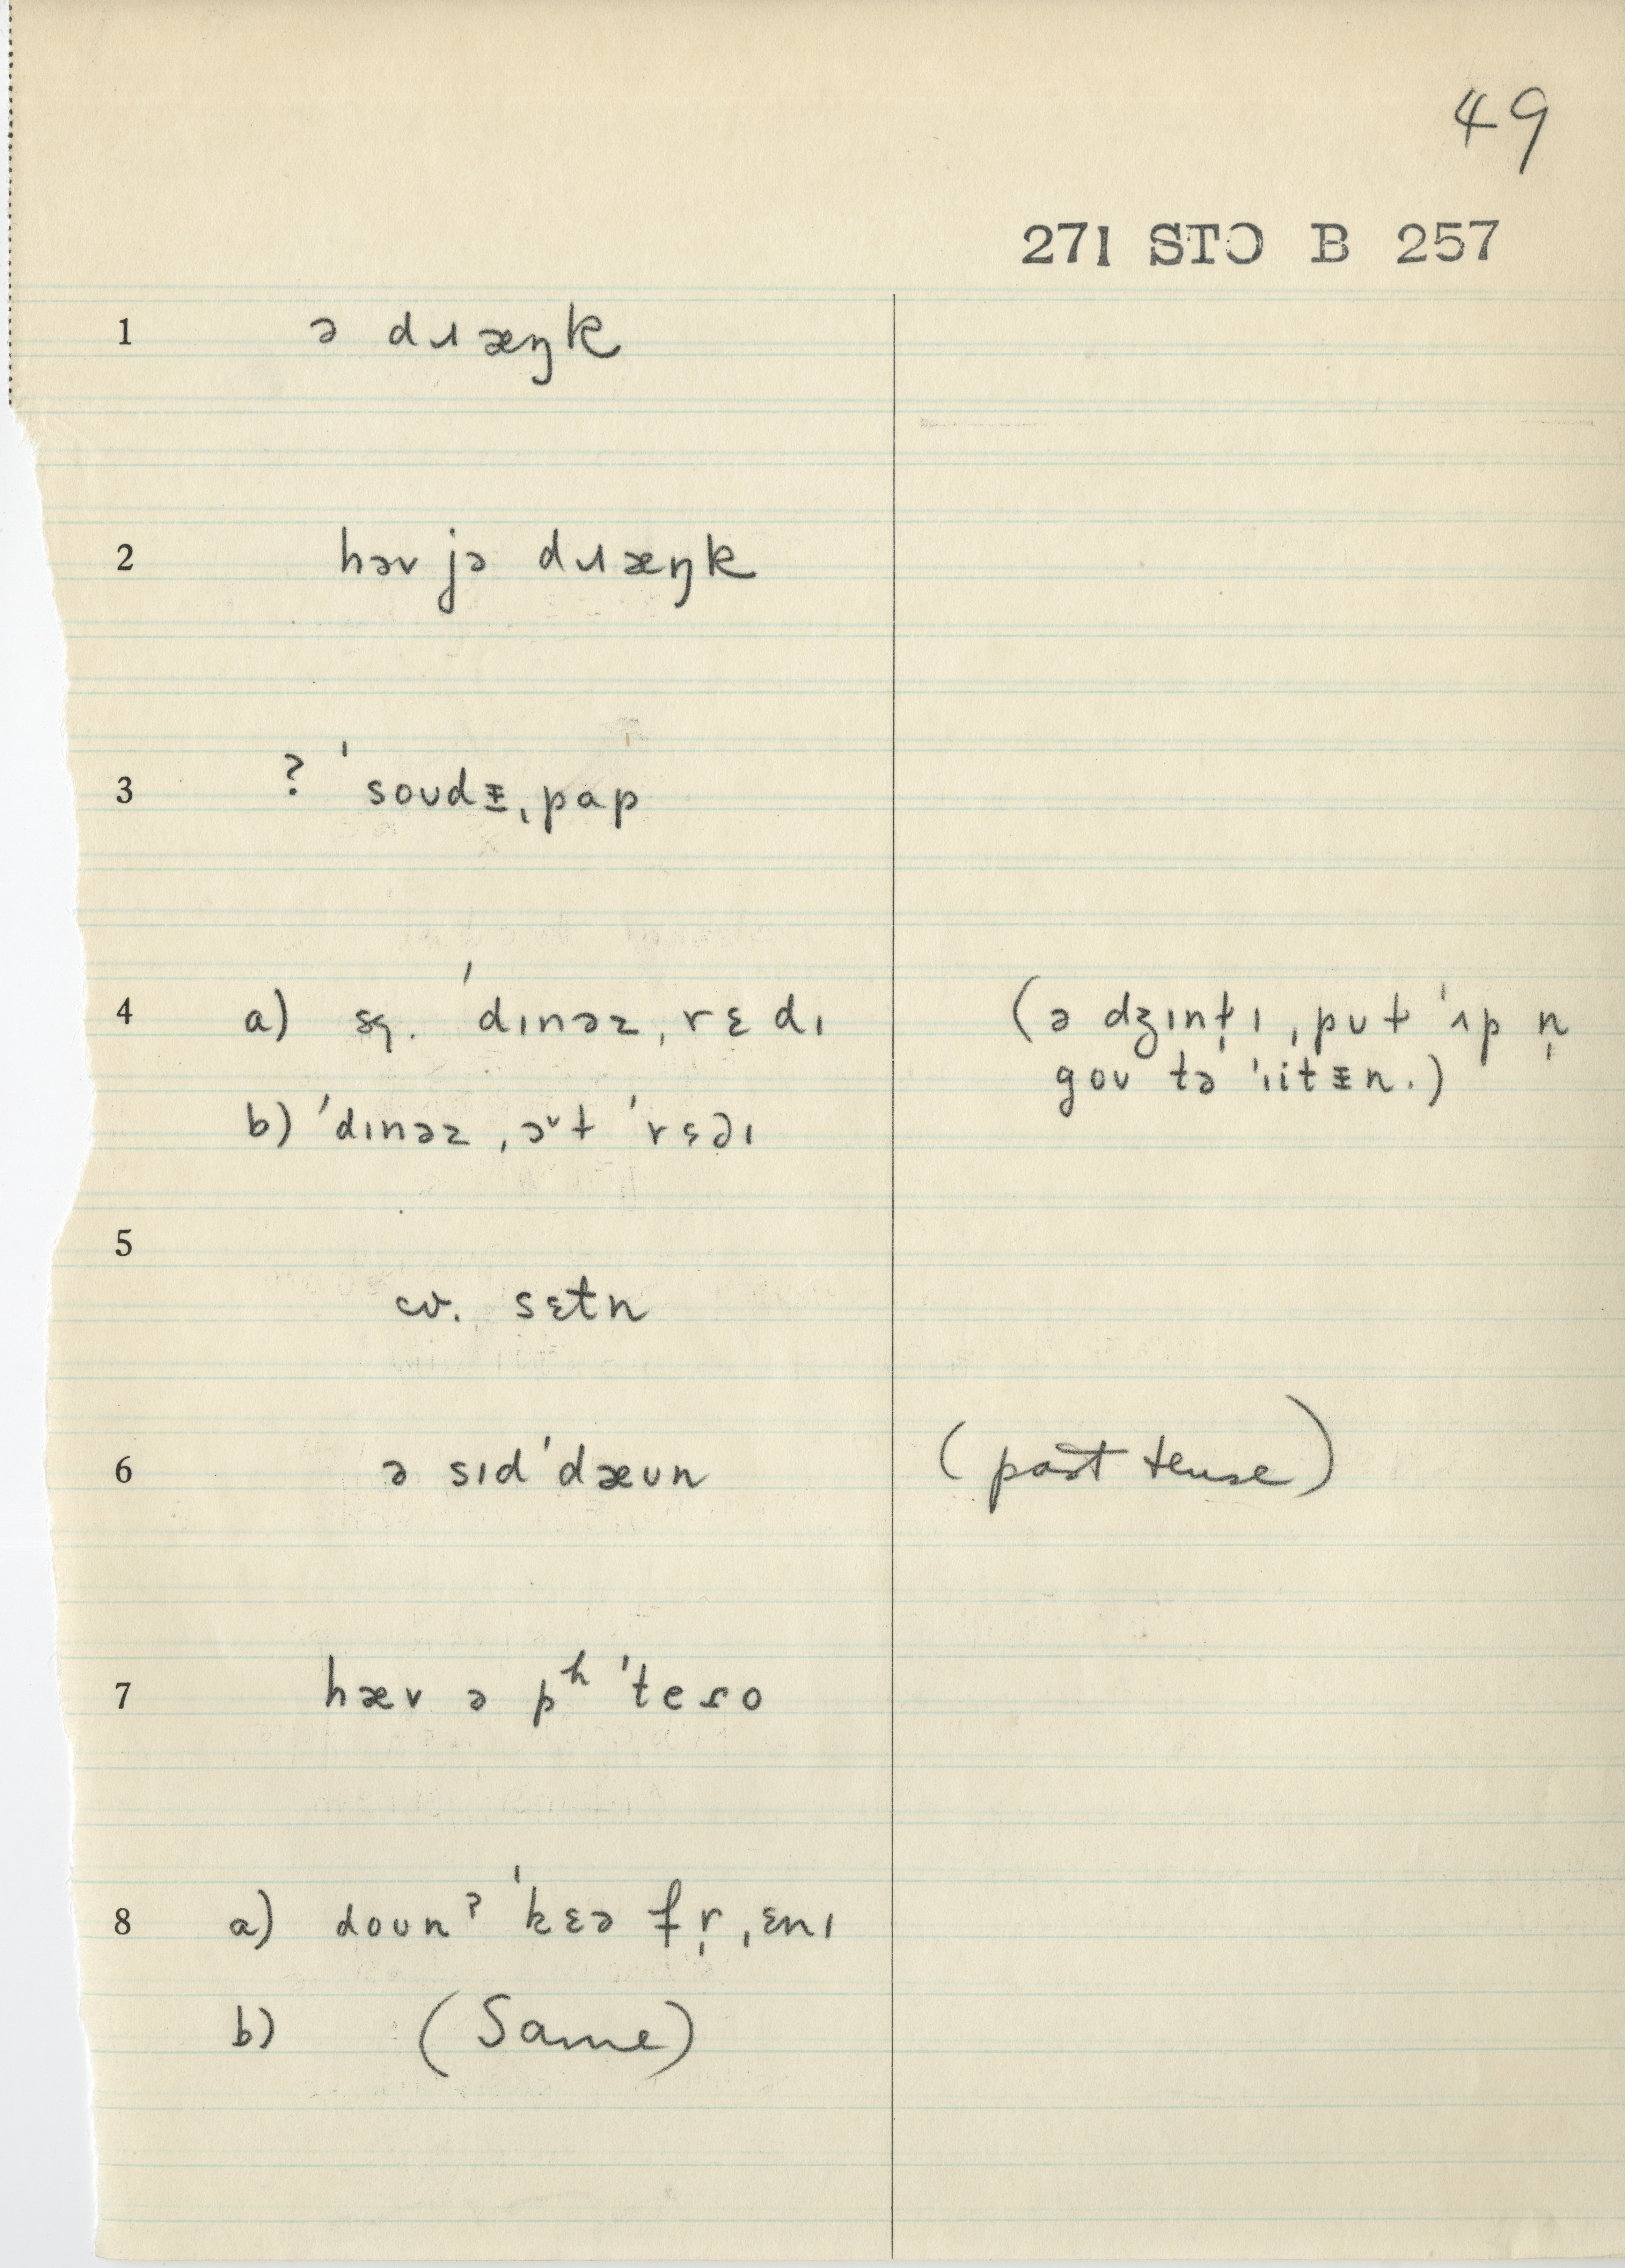 49
271 STO B 257
1 ə dɹæŋk
2 həv jə dɹæŋk
3 ? ˈsoʊdᵻˌpap
4 a) sg. ˈdɪnəzˌrɛdɪ (ə dʒɪnt̩ɪˌpʊt ˈʌp n̩
goʊ tə ˈɪitᵻn.)
b) ˈdɪnəzˌəᵛt ˈrɛdɪ
5
cv. sɛtn
6 ə sɪdˈdæʊn (past tense)
7 hæv ə pʰˈteɾo
8 a) doʊnˀ ˈkɛə fr̩ˌɛnɪ
b) (Same)